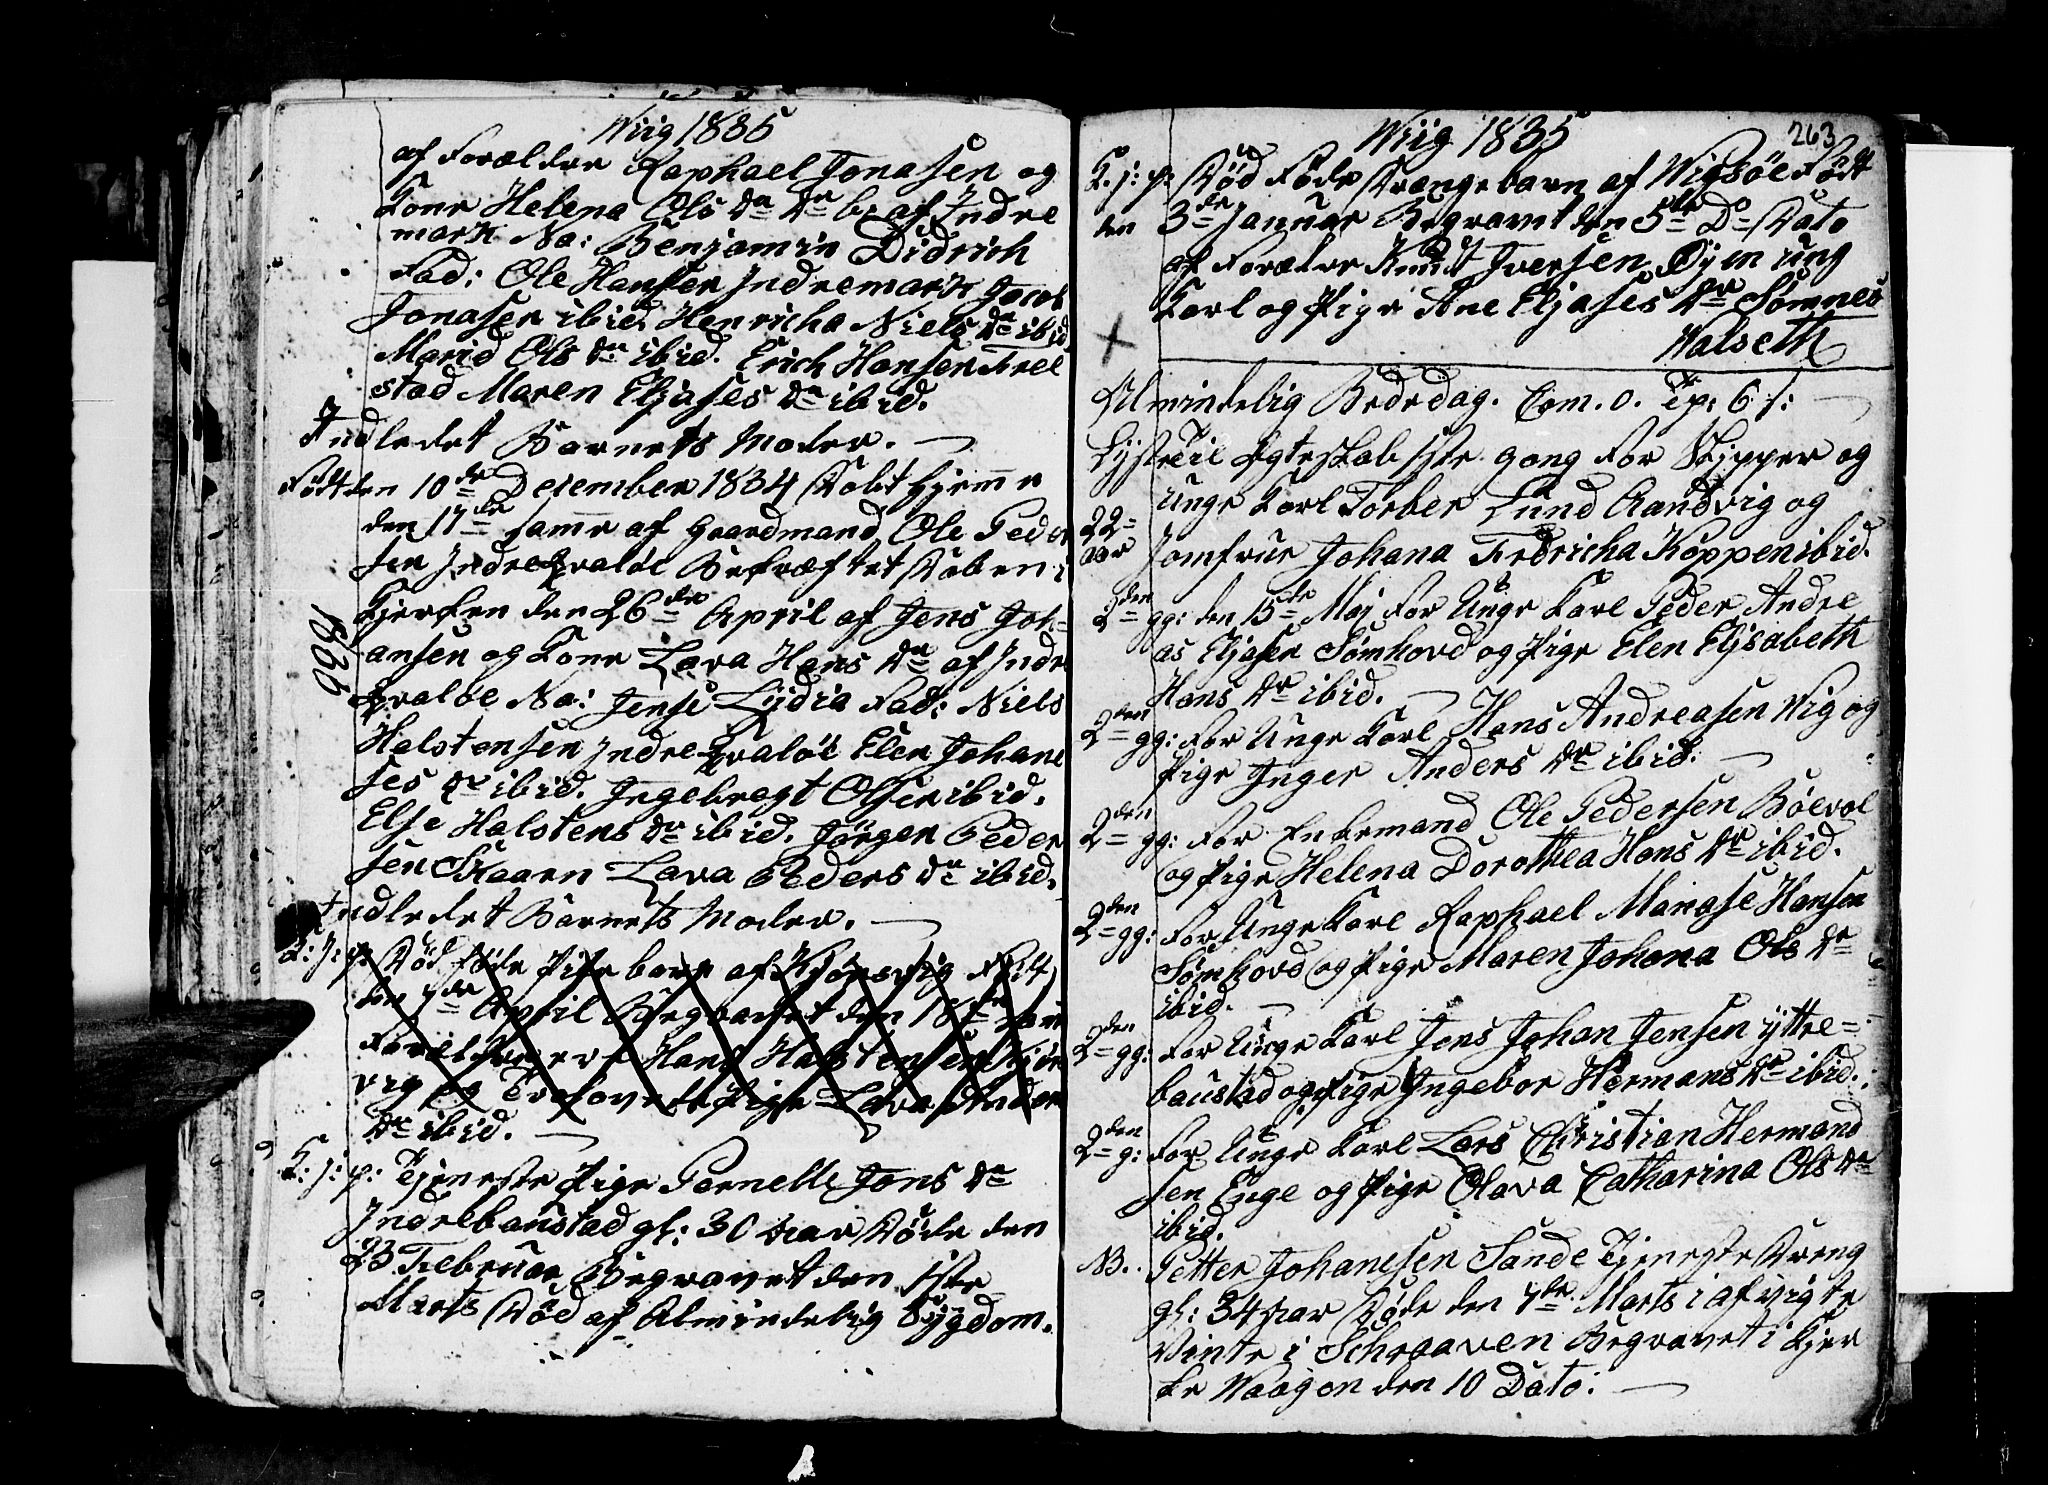 Wiig 1835
af Forældre Raphael Jonasen og
Kone Helena Ols Dr af Indre
mark Na: Benjamin Didrich
Fad: Ole Hansen Indremark Jacob
Jonasen ibid. Henricha Niels Dr ibid
Marid Ols Dr ibid. Erich Hansen Trel
stad Maren Eljases Dr ibid.
Indledet Barnets Moder.
Født den 10de December 1834 Døbt hjemme
den 17de samme af Gaardmand Ole Peder
sen Indre Qvaløe Bekræftet Daaben i
Kjerken den 26de April af Jens Joh-
ansen og Kone Lava Hans Dr af Indre
Qvaløe Na: Jense Lydia Fad: Niels
1836
Halstensen Indre Qvaløe Elen Johane
ses Dr ibid. Ingebregt Olsen ibid.
Else Halstens Dr ibid. Jörgen Peder
sen Skaarn Lava Peders Dr ibid.
Indledet Barnets Moder.
K: j: p: Død føde Pige barn af Födt
den 7de April Begravet den 18de
Forældre ere Hans Halstensen
vig og Trolovede Pige Lava Anders
Dr ibid.
K: j: p: Tjeneste Pige Pernelle Jons Dr
Indrebaustad gl: 30 aar Døde den
23 Februar Begravet den 1ste
Marts Død af Almindelig Sygdom.
Wiig 1835
263
K: j: p: Död Föde Drengebarn af Wigsöe Födt
den 3de Januar Begravet den 5te Do Dato
af Forældre Knud Iversen Öÿm ung
Karl og Pige Ane Eljases Dr Sømnes
Walseth
Almindelig Bededag. Com. 0. Tp: 6 s:
Lyste Til Egteskab 1ste gang for Skipper og
unge Karl Torber Lund Randvig og
22 aar Jomfrue Johana Fredricha Koppen ibid.
2den gg: den 15de Maj for Unge Karl Peder Andre
as Eljasen Sømhovd og Pige Elen Eljsabeth
Hans Dr ibid.
2den gg: for Unge Karl Hans Andreasen Wig og
Pige Inger Anders Dr ibid.
2den gg: for Enkemand Ole Pedersen Böevol
og Pige Helena Dorothea Hans Dr ibid.
2den gg: for Unge Karl Raphael Manase Hansen
Sømhovd og Pige Maren Johana Ols Dr
ibid.
2den gg: for Unge Karl Jens Johan Jensen ÿttre-
baustad og Pige Ingebor Hermans Dr ibid.
2den g: for Unge Karl Lars Christian Hermand
sen Enge og Pige Olava Catharina Ols Dr
ibid.
NB. Petter Johanesen Sande Tjeneste Dreng
gl: 34 aar Døde den 7de Marts i afvigte
Vinter i Schraaven Begravet i Kjer
ke Waagen den 10 Dato.